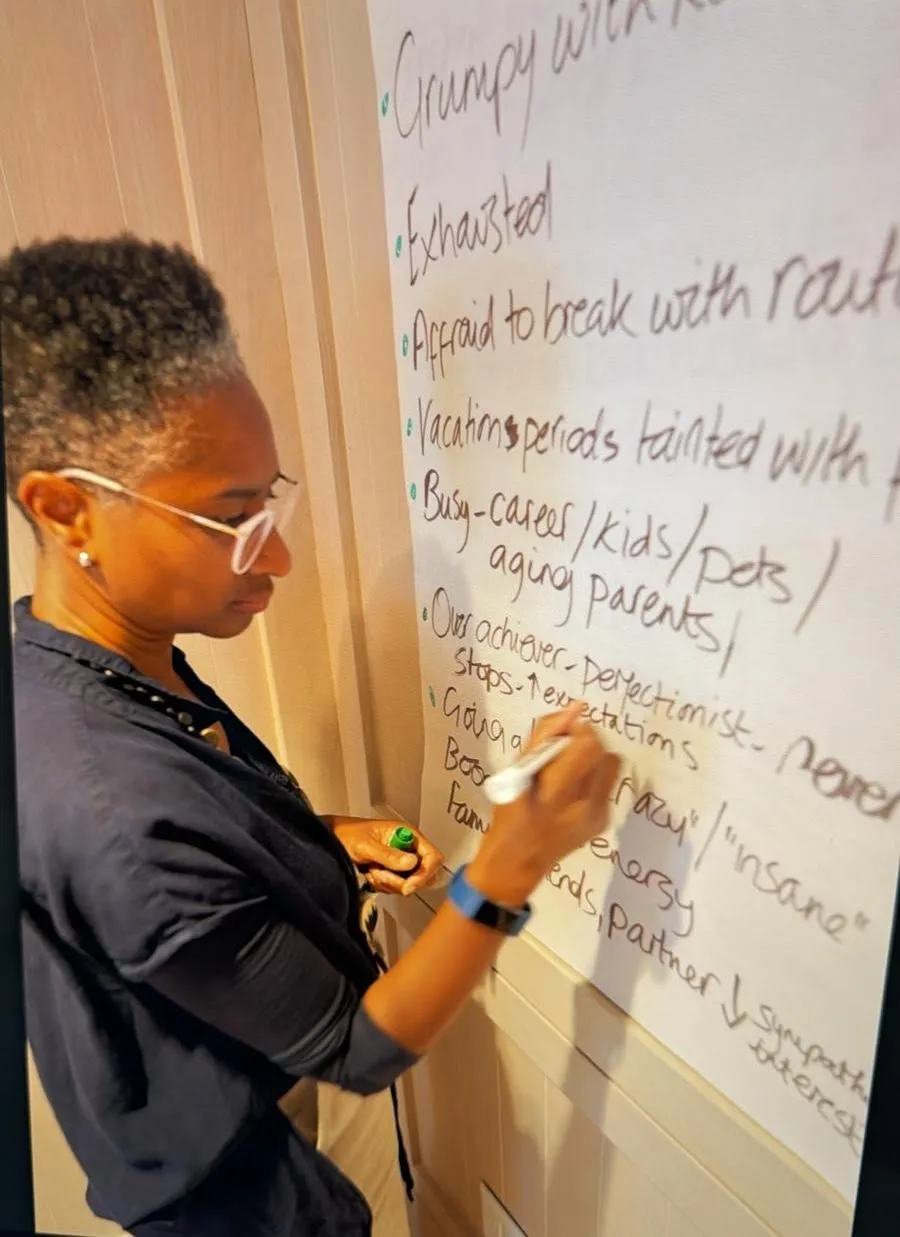 Grumpy with
Exhausted
Affraid to break with
Vacations periods tainted with
Busy-career/kids/pets/
aging parents/
Over achiever-perfectionist-never
stops-↑expectations
Going "crazy"/"insane"
energy
partner ↓